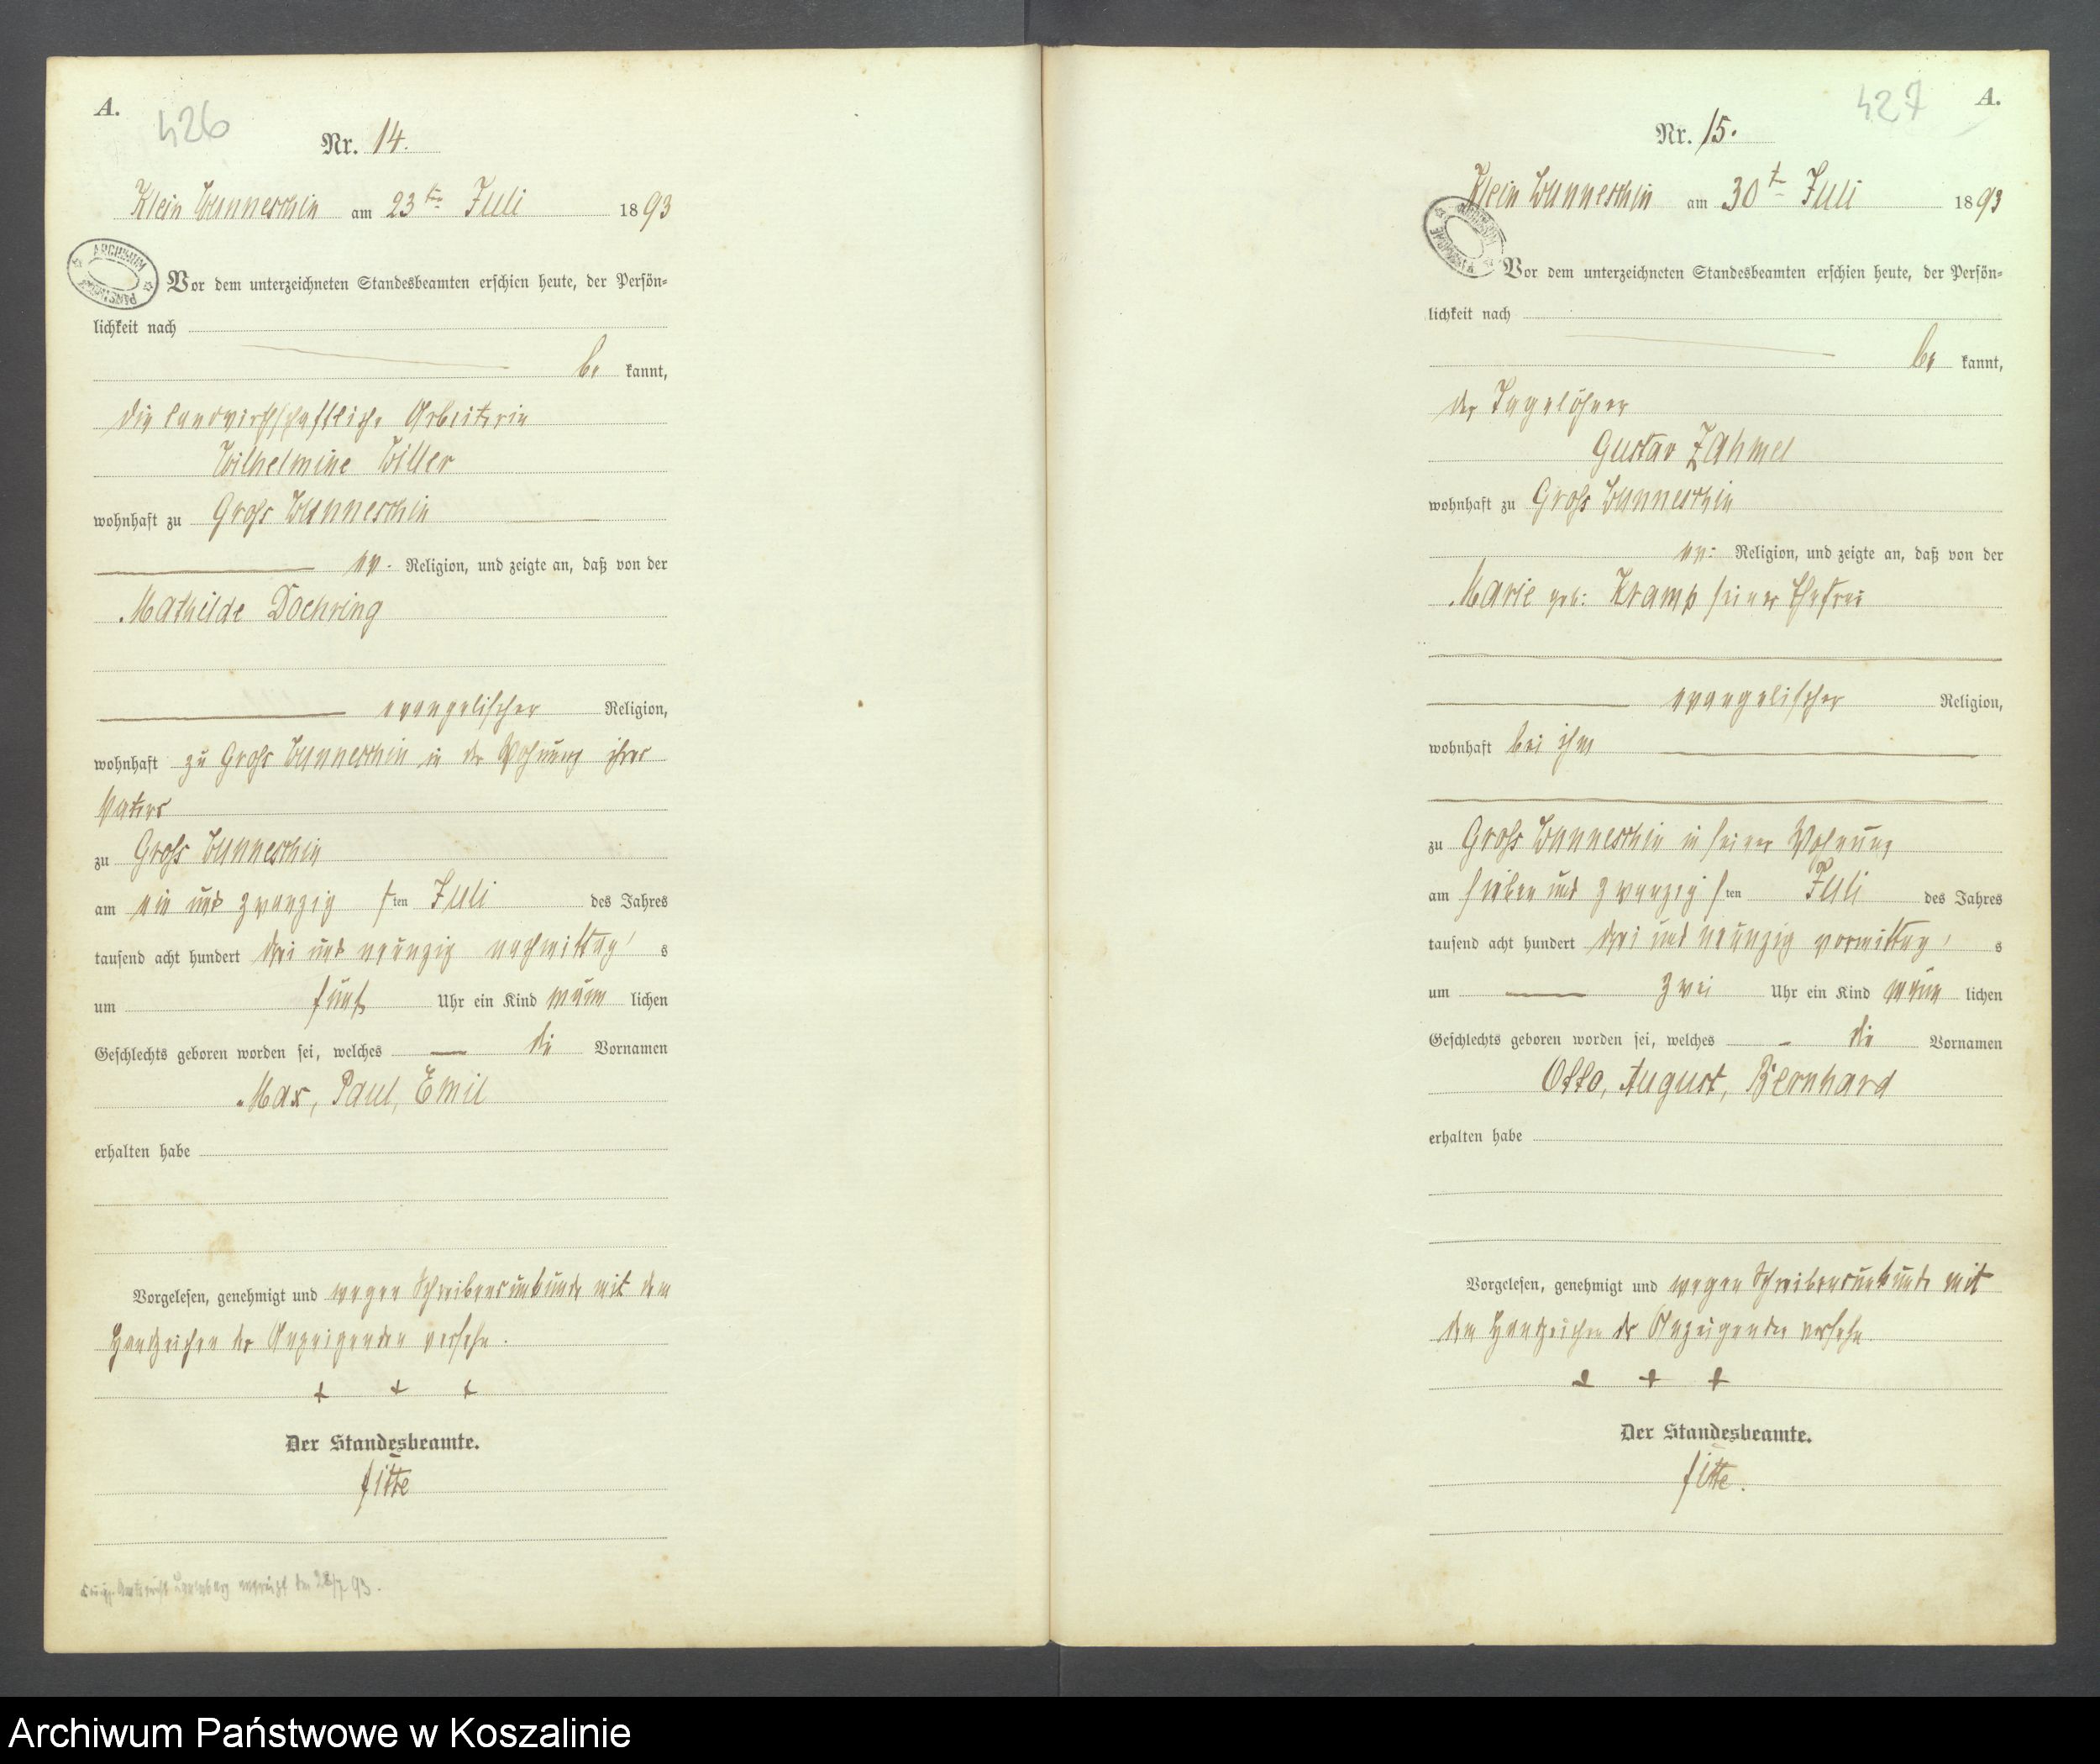 A.
426
Nr. 14.
Klein Wunneschin am 23ten Juli 1893
ARCHIWUM PAŃSTWOWE
Vor dem unterzeichneten Standesbeamten erschien heute, der Persön-
lichkeit nach
be kannt,
die landwirthschaftliche Arbeiterin
Wilhelmine Witter
wohnhaft zu Groß Wunneschin
ev. Religion, und zeigte an, daß von der
Mathilde Doehring
evangelischer Religion,
wohnhaft zu Groß Wunneschin in der Wohnung ihres
Vaters
zu Groß Wunneschin
am ein und zwanzig sten Juli des Jahres
tausend acht hundert drei und neunzig nachmittag s
um fünf Uhr ein Kind männ lichen
Geschlechts geboren worden sei, welches die Vornamen
Max, Paul, Emil
erhalten habe
Vorgelesen, genehmigt und wegen Schreibensunkunde mit dem
Handzeichen der Anzeigenden versehn.
+ + +
Der Standesbeamte.
Fitte
Amtsgericht Lauenburg 93.
A.
427
Nr. 15.
Klein Wunneschin am 30t Juli 1893
ARCHIWUM PAŃSTWOWE
Vor dem unterzeichneten Standesbeamten erschien heute, der Persön-
lichkeit nach
be kannt,
der Tagelöhner
Gustav Zahmel
wohnhaft zu Groß Wunneschin
ev: Religion, und zeigte an, daß von der
Marie geb: Kramp seiner Ehefrau
evangelischer Religion,
wohnhaft bei ihm
zu Groß Wunneschin in seiner Wohnung
am sieben und zwanzig sten Juli des Jahres
tausend acht hundert drei und neunzig vormittag s
um zwei Uhr ein Kind männ lichen
Geschlechts geboren worden sei, welches die Vornamen
Otto, August, Bernhard
erhalten habe
Vorgelesen, genehmigt und wegen Schreibensunkunde mit
dem Handzeichen des Anzeigenden versehn
+ + +
Der Standesbeamte.
Fitte.
Archiwum Państwowe w Koszalinie